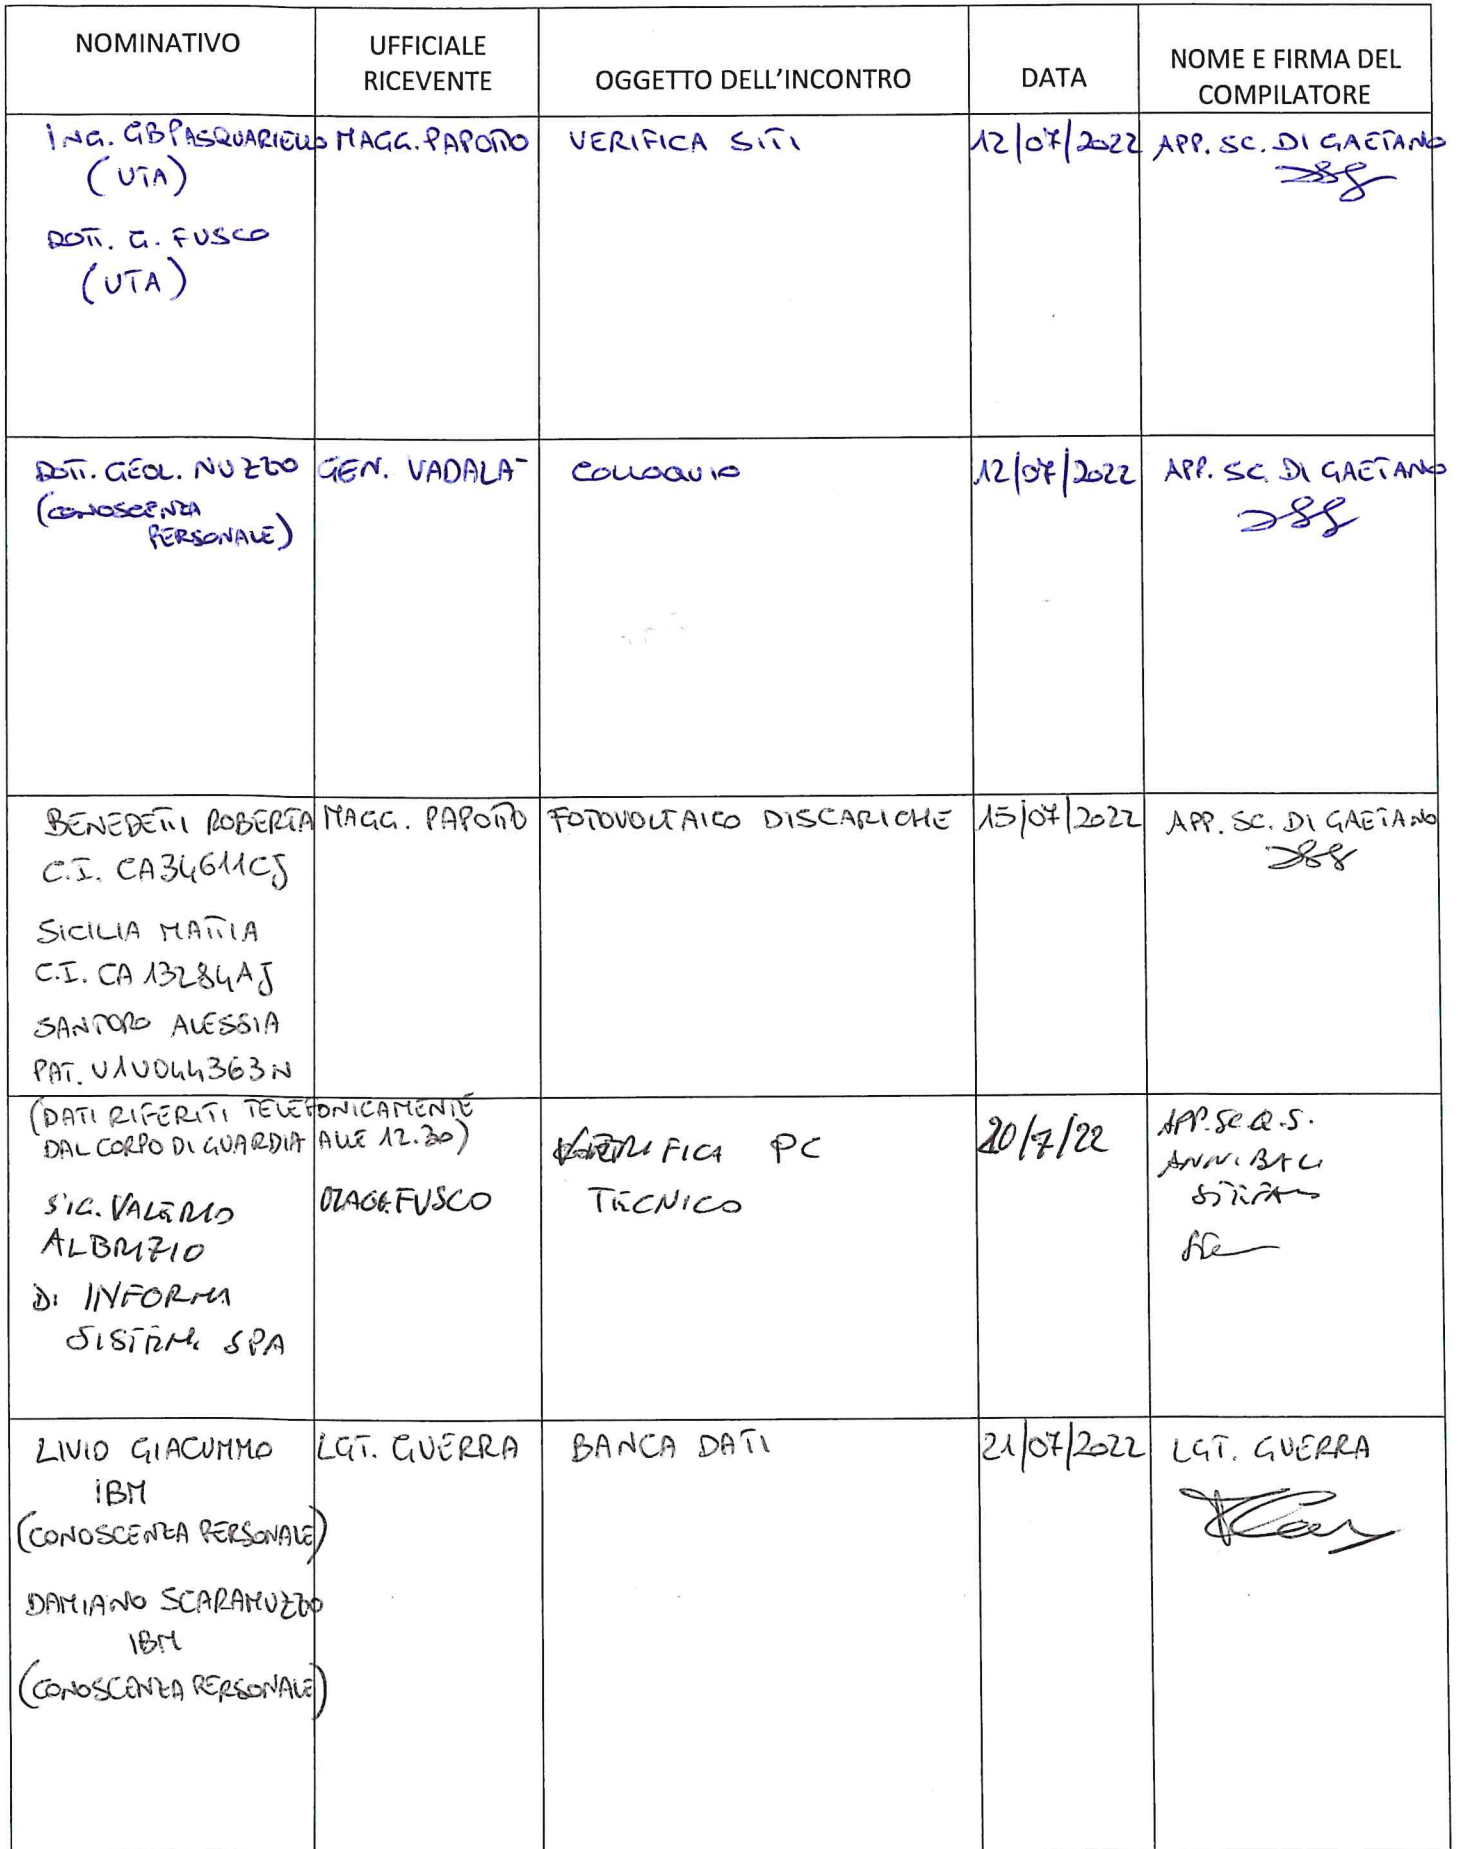 NOMINATIVO
UFFICIALE
RICEVENTE
OGGETTO DELL'INCONTRO
DATA
NOME E FIRMA DEL
COMPILATORE
ING. GB PASQUARIELLO
(UTA)
DOTT. G. FUSCO
(UTA)
MAGG. PAPOTTO
VERIFICA SITI
12/07/2022
APP. SC. DI GAETANO
DOTT. GEOL. NUZZO
(CONOSCENZA
PERSONALE)
GEN. VADALA'
COLLOQUIO
12/07/2022
APP. SC. DI GAETANO
BENEDETTI ROBERTA
C.I. CA34611CJ
SICILIA MATTIA
C.I. CA 13284AJ
SANTORO ALESSIA
PAT. U1V044363N
MAGG. PAPOTTO
FOTOVOLTAICO DISCARICHE
15/07/2022
APP. SC. DI GAETANO
(DATI RIFERITI TELEFONICAMENTE
DAL CORPO DI GUARDIA ALLE 12.30)
SIG. VALERIO
ALBRIZIO
DI INFORMA
SISTEMI SPA
MAGG. FUSCO
VERIFICA PC
TECNICO
20/7/22
APP. SC. Q.S.
ANNIBALI
STEFANO
LIVIO GIACUMMO
IBM
(CONOSCENZA PERSONALE)
DAMIANO SCARAMUZZO
IBM
(CONOSCENZA PERSONALE)
LGT. GUERRA
BANCA DATI
21/07/2022
LGT. GUERRA